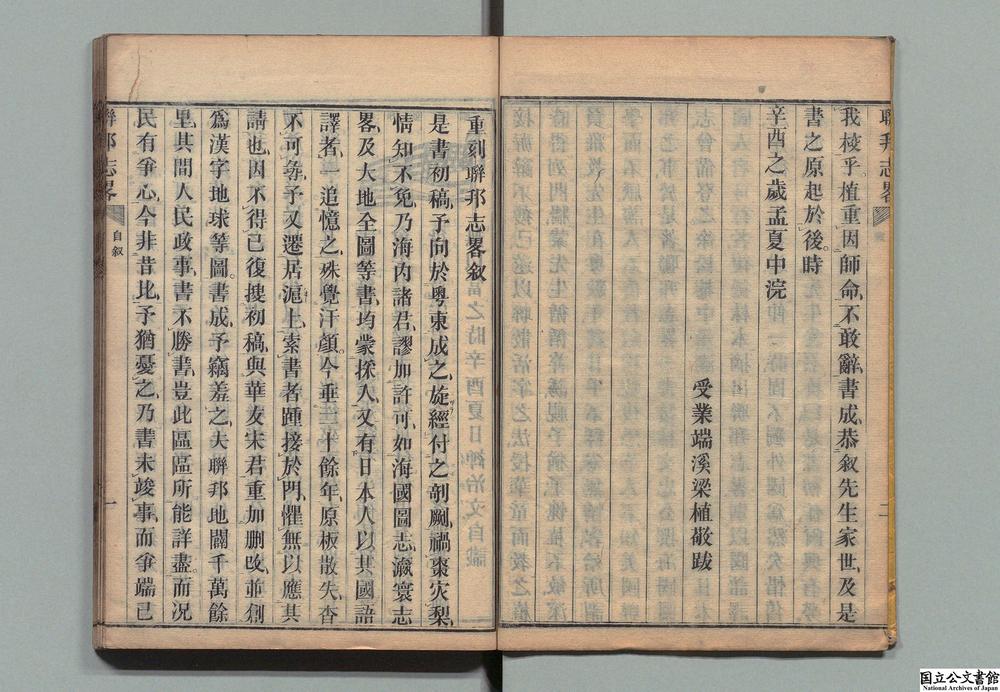 聯邦志畧
二
我梭乎植重因師命不敢辭書成恭叙先生家世及是
書之原起於後時
辛酉之歲孟夏中浣
受業端溪梁植敬跋
重刻聯邦志畧叙
是書初稿予向於粵東成之旋經付之剞劂禍棗灾梨
情知不免乃海内諸君謬加許可如海國圖志瀛寰志
畧及大地全圖等書均蒙採入又有日本人以其國語
譯者一追憶之殊覺汗顔今垂二十餘年原板散失杳
不可尋予又遷居滬上索書者踵接於門懼無以應其
請也因不得已復搜初稿與華友宋君重加删改並創
爲漢字地球等圖書成予竊羞之夫聯邦地闊千萬餘
里其間人民政事書不勝書豈此區區所能詳盡而況
民有爭心今非昔比予猶憂之乃書未竣事而爭端已
聯邦志畧
自叙
一
国立公文書館
National Archives of Japan